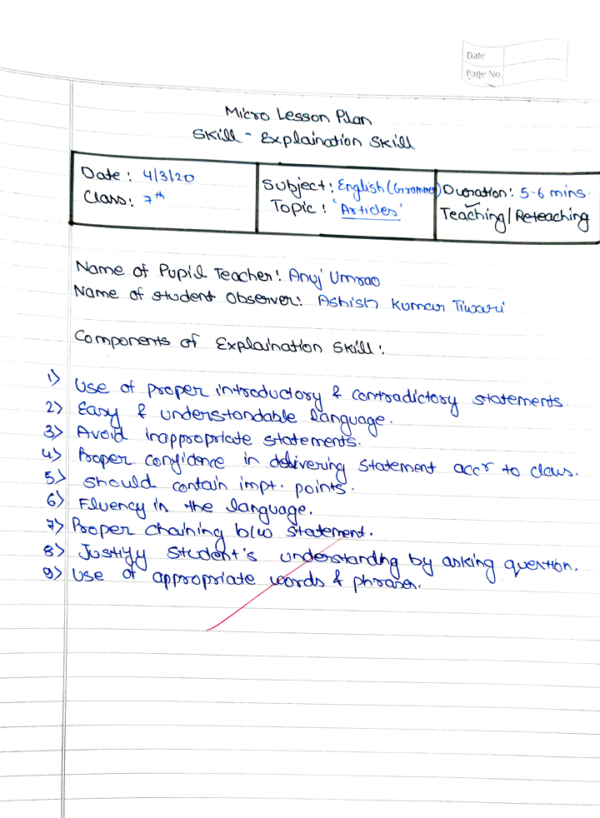 Date
Page No.
Micro Lesson Plan
Skill - Explaination Skill
Date : 4/3/20
Class : 7th
Subject : English (Grammer)
Topic : 'Articles'
Duration : 5-6 mins.
Teaching / Reteaching
Name of Pupil Teacher : Anuj Umrao
Name of student Observer : Ashish Kumar Tiwari
Components of Explaination Skill :
1> Use of proper introductory & contradictory statements.
2> Easy & understandable language.
3> Avoid inappropriate statements.
4> Proper confidence in delivering statement accr to class.
5> Should contain impt. points.
6> Fluency in the language.
7> Proper chaining b/w statement.
8> Justify student's understanding by asking question.
9> Use of appropriate words & phrases.